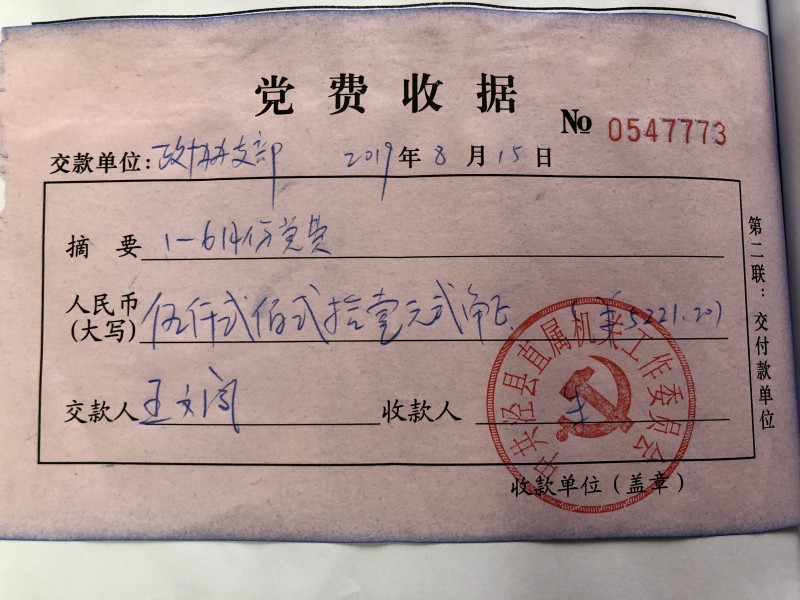 党费收据
№ 0547773
交款单位:政协办支部 2019年8月15日
摘要 1—6月份党费
人民币(大写) 伍仟弍佰弍拾壹元弍角正 5221.20
交款人 王文 收款人
收款单位(盖章)
第二联:交付款单位
中共泾县直属机关工作委员会